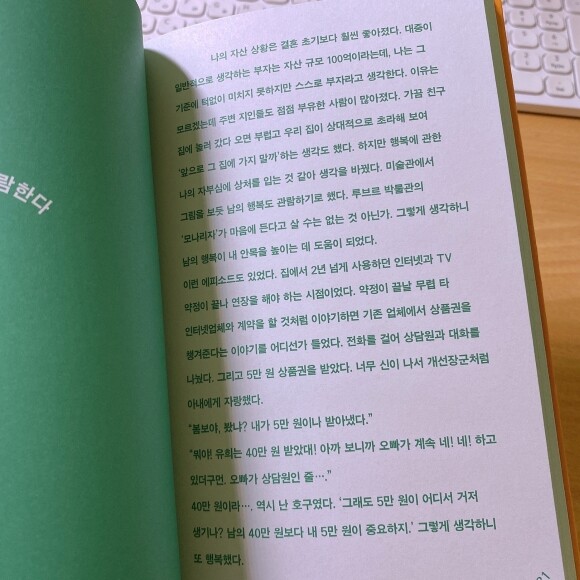 람한다
나의 자산 상황은 결혼 초기보다 훨씬 좋아졌다. 대중이
일반적으로 생각하는 부자는 자산 규모 100억이라는데, 나는 그
기준에 턱없이 미치지 못하지만 스스로 부자라고 생각한다. 이유는
모르겠는데 주변 지인들도 점점 부유한 사람이 많아졌다. 가끔 친구
집에 놀러 갔다 오면 부럽고 우리 집이 상대적으로 초라해 보여
'앞으로 그 집에 가지 말까'하는 생각도 했다. 하지만 행복에 관한
나의 자부심에 상처를 입는 것 같아 생각을 바꿨다. 미술관에서
그림을 보듯 남의 행복도 관람하기로 했다. 루브르 박물관의
'모나리자'가 마음에 든다고 살 수는 없는 것 아닌가. 그렇게 생각하니
남의 행복이 내 안목을 높이는 데 도움이 되었다.
이런 에피소드도 있었다. 집에서 2년 넘게 사용하던 인터넷과 TV
약정이 끝나 연장을 해야 하는 시점이었다. 약정이 끝날 무렵 타
인터넷업체와 계약을 할 것처럼 이야기하면 기존 업체에서 상품권을
챙겨준다는 이야기를 어디선가 들었다. 전화를 걸어 상담원과 대화를
나눴다. 그리고 5만 원 상품권을 받았다. 너무 신이 나서 개선장군처럼
아내에게 자랑했다.
"봄보야, 봤냐? 내가 5만 원이나 받아냈다."
"뭐야! 유희는 40만 원 받았대! 아까 보니까 오빠가 계속 네! 네! 하고
있더구먼. 오빠가 상담원인 줄…."
40만 원이라…. 역시 난 호구였다. '그래도 5만 원이 어디서 거저
생기나? 남의 40만 원보다 내 5만 원이 중요하지.' 그렇게 생각하니
또 행복했다.